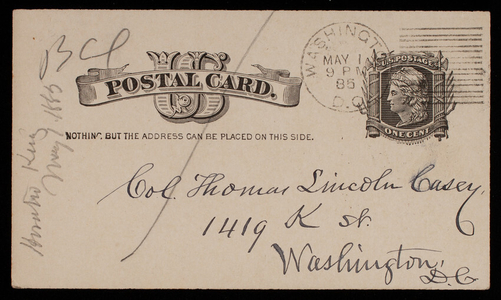 BCL
Horatio King
May 1, 1885
US
POSTAL CARD.
NOTHING BUT THE ADDRESS CAN BE PLACED ON THIS SIDE.
WASHINGTON
MAY 1
9 PM
85
D.C.
U.S. POSTAGE
ONE CENT
Col. Thomas Lincoln Casey,
1419 K St.
Washington,
D.C.